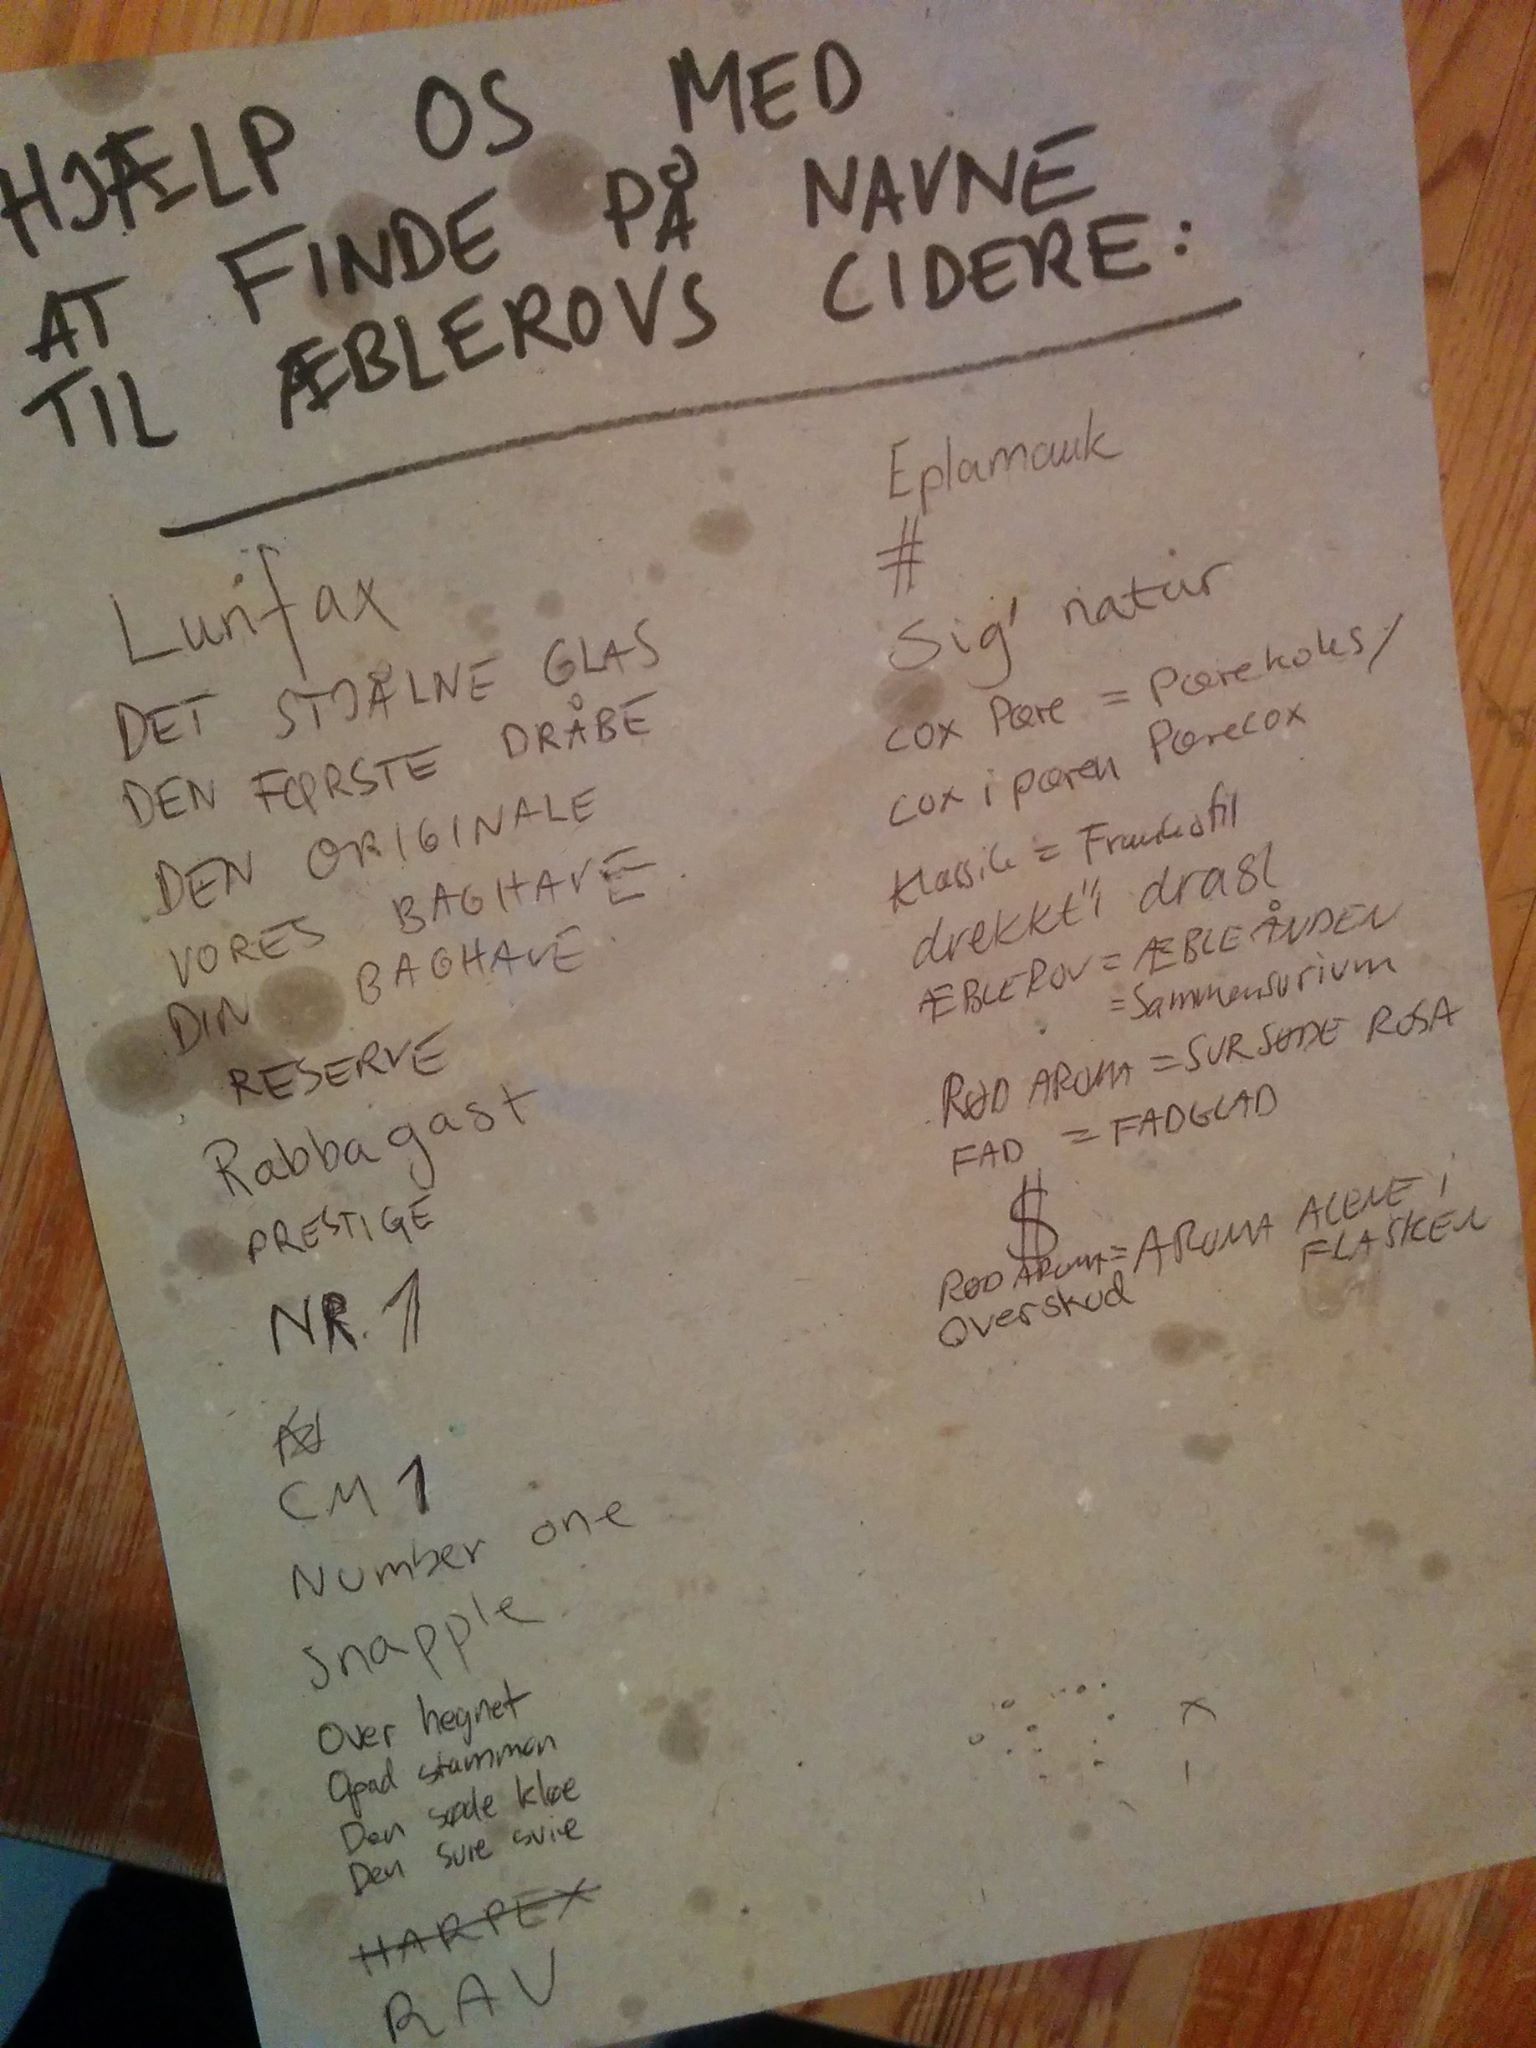 HJÆLP OS MED
AT FINDE PÅ NAVNE
TIL ÆBLEROVS CIDERE:
Lunifax
DET STJÅLNE GLAS
DEN FØRSTE DRÅBE
DEN ORIGINALE
VORES BAGHAVE
DIN BAGHAVE
RESERVE
Rabbagast
PRESTIGE
NR. 1
CM 1
Number one
Snapple
Over hegnet
Opad stammen
Den søde kløe
Den sure svie
HARPEX
RAV
Eplamauk
#
Sig' natur
cox Pære = Pærekoks/
cox i pæren Pærecox
Klassik =
drekkt"i dras
ÆBLEROV = ÆBLEÅNDEN
= Sammensurium
RØD AROMA = SURSØDE ROSA
FAD = FADGLAD
$
RØD AROMA = AROMA ALENE i
FLASKEN
Overskud